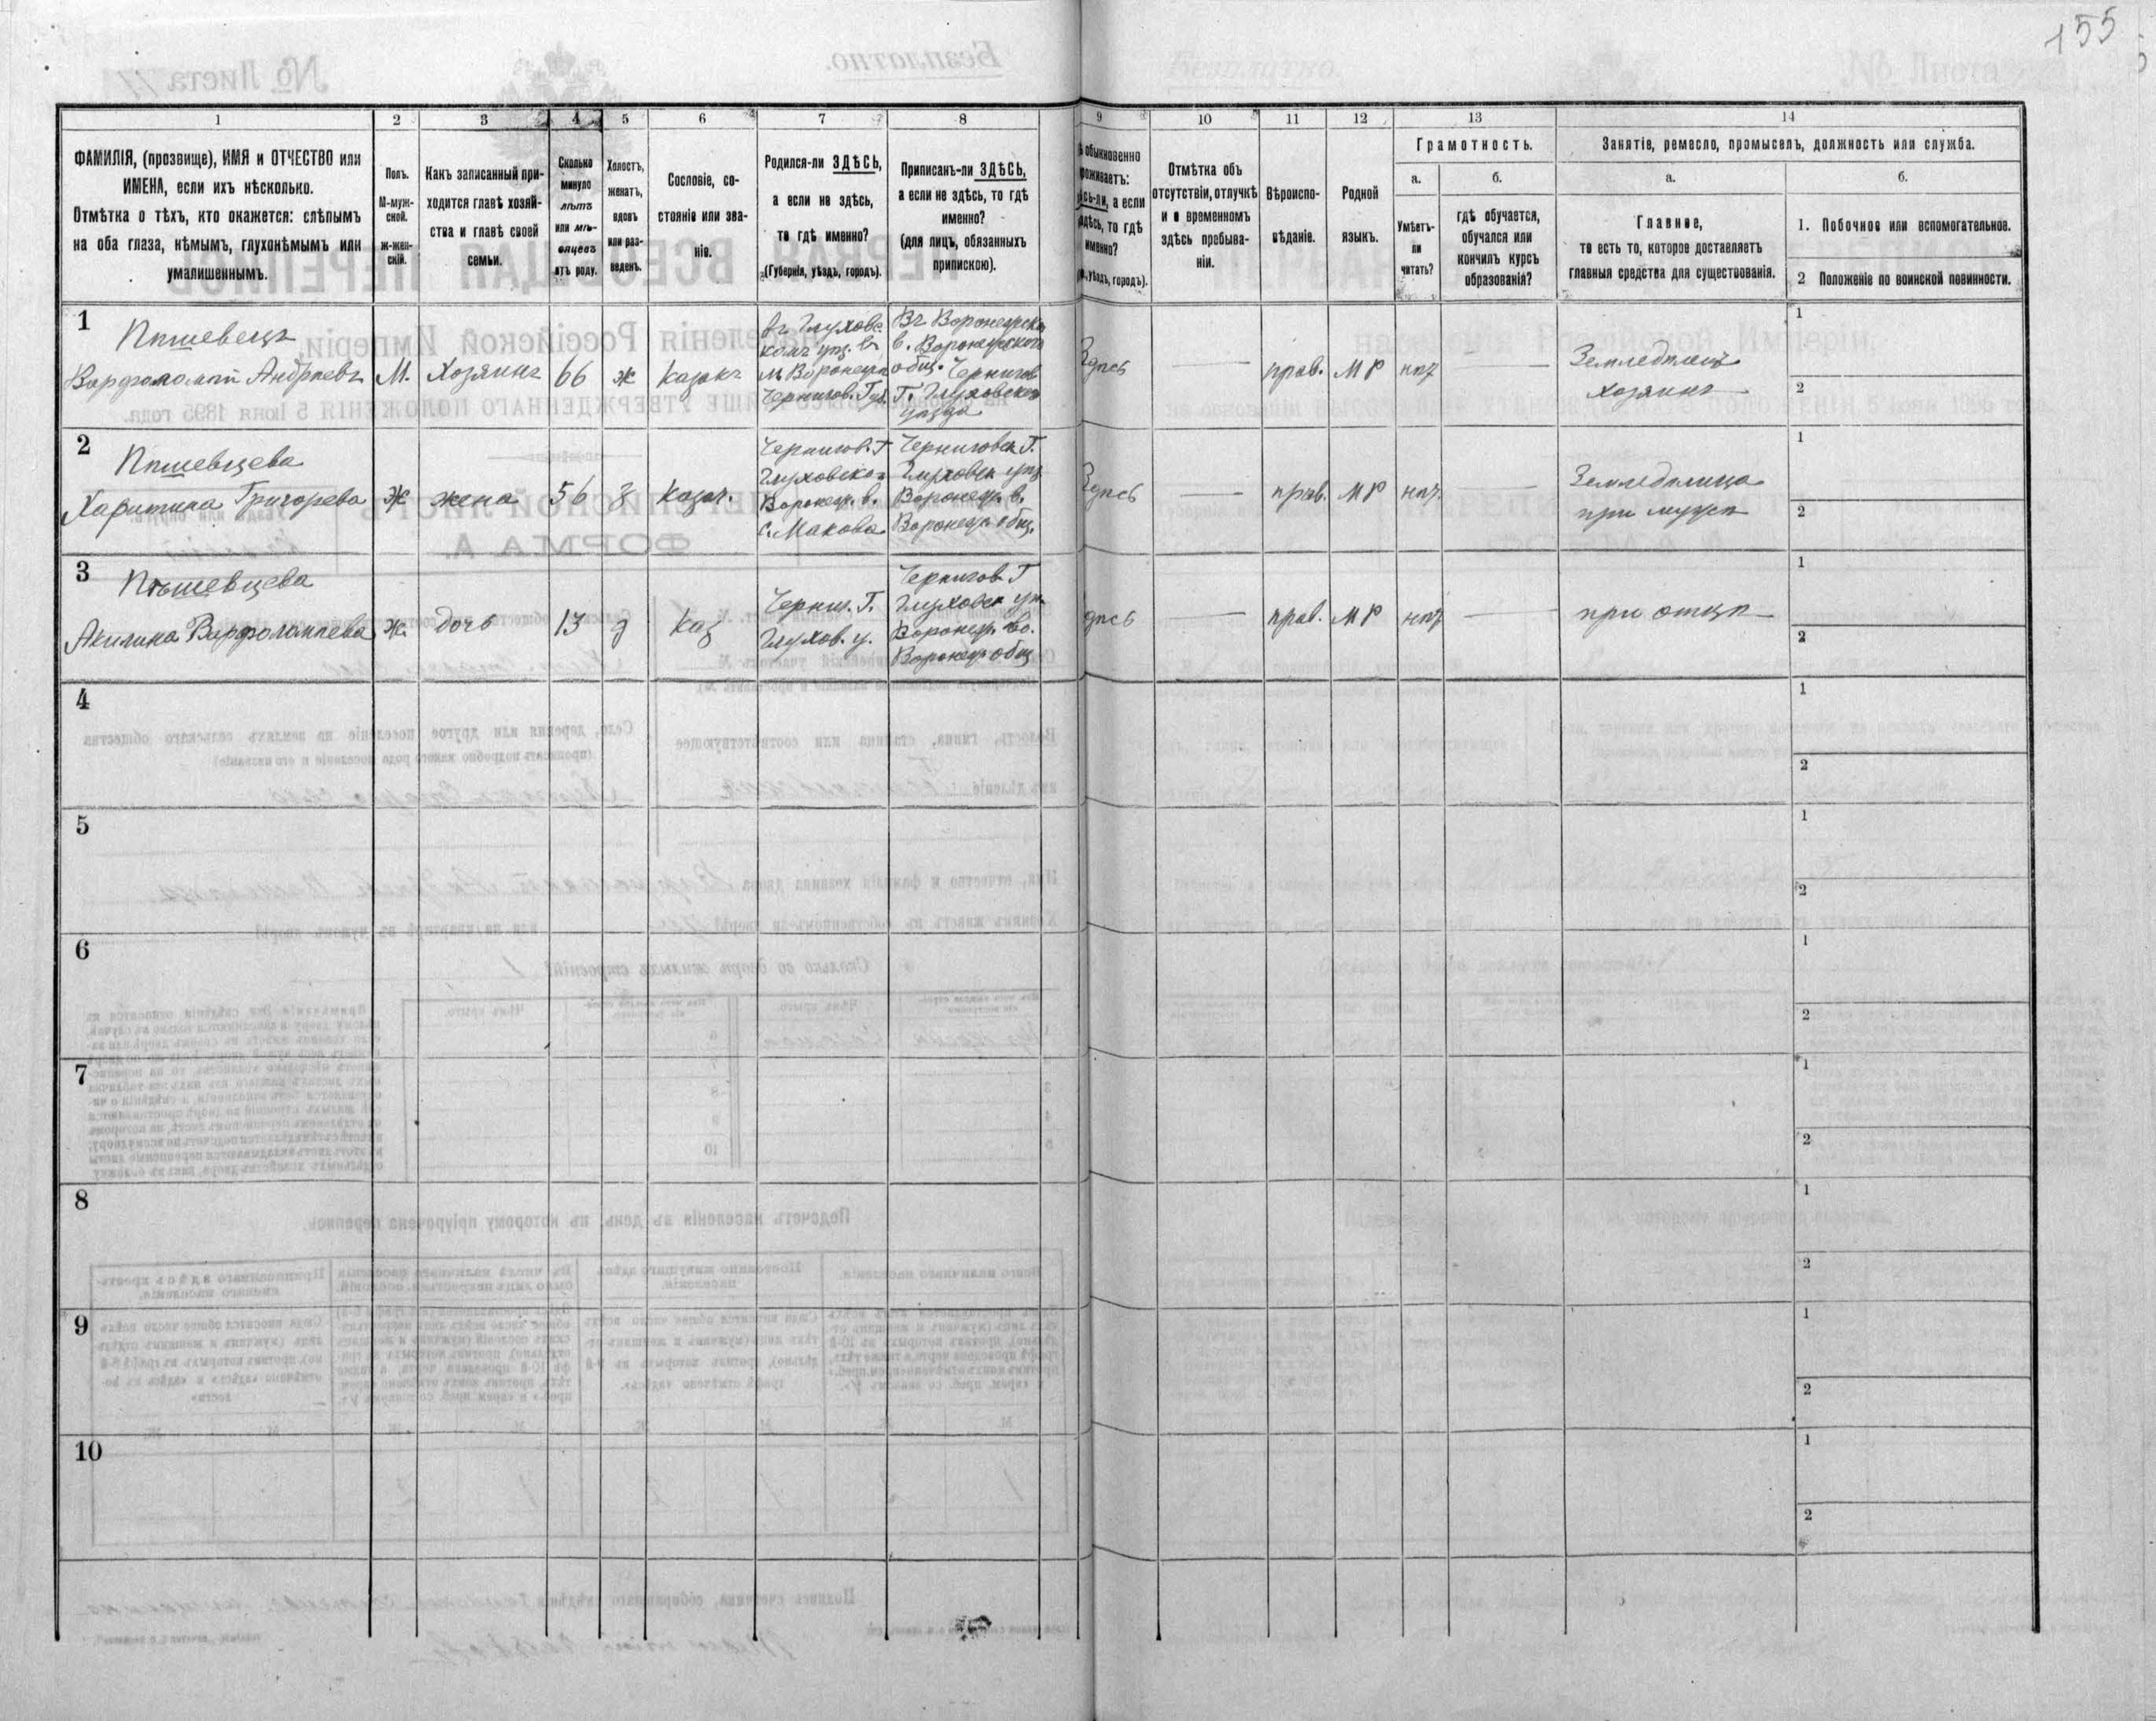 155
1
2
3
4
5
6
7
8
9
10
11
12
13
14
ФАМИЛІЯ, (прозвище), ИМЯ и ОТЧЕСТВО или
ИМЕНА, если ихъ нѣсколько.
Отмѣтка о тѣхъ, кто окажется: слѣпымъ
на оба глаза, нѣмымъ, глухонѣмымъ или
умалишеннымъ.
Полъ.
М-муж-
ской.
ж-жен-
скій.
Какъ записанный при-
ходится главѣ хозяй-
ства и главѣ своей
семьи.
Сколько
минуло
лѣтъ
или мѣ-
сяцевъ
отъ роду.
Холостъ,
женатъ,
вдовъ
или раз-
веденъ.
Сословіе, со-
стояніе или зва-
ніе.
Родился-ли ЗДѢСЬ,
а если не здѣсь,
то гдѣ именно?
(Губернія, уѣздъ, городъ).
Приписанъ-ли ЗДѢСЬ,
а если не здѣсь, то гдѣ
именно?
(для лицъ, обязанныхъ
припискою).
обыкновенно
а если
то гдѣ
именно?
уѣздъ, городъ).
Отмѣтка объ
отсутствіи, отлучкѣ
и о временномъ
здѣсь пребыва-
ніи.
Вѣроиспо-
вѣданіе.
Родной
языкъ.
Грамотность.
а.
б.
Умѣетъ-
ли
читать?
гдѣ обучается,
обучался или
кончилъ курсъ
образованія?
Занятіе, ремесло, промыселъ, должность или служба.
а.
б.
Главное,
то есть то, которое доставляетъ
главныя средства для существованія.
1. Побочное или вспомогательное.
2 Положеніе по воинской повинности.
1
Пѣшевецъ
Варфоломей Андреевъ
М.
Хозяинъ
66
ж
казакъ
Въ Глухов
комъ уѣз. в
м Воронежъ
Чернигов. Губ.
Въ Воронежско
в. Воронежского
общ. Чернигов
Г. Глуховского
уѣзда
прав.
МР
нѣт
Земледѣлецъ
Хозяинъ
1
2
2
Пѣшевцева
Харитина Григорьева
Ж
жена
56
З
казач.
Чернигов. Г
Глуховского
Воронеж. в.
с. Макова
Черниговск Г.
Глуховск уѣз
Воронеж. в.
Воронеж общ.
Здѣсь
прав.
МР
нѣт.
Земледѣлица
при мужѣ
1
2
3
Пѣшевцева
Акилина Варфоломѣева
Ж.
дочь
13
д
каз
Черниг. Г.
Глухов. у.
Чернигов Г
Глуховск уѣз
Воронеж во.
Воронеж общ
прав.
МР
нѣт
при отцѣ
1
2
4
1
2
5
1
2
6
1
2
7
1
2
8
1
2
9
1
2
10
1
2